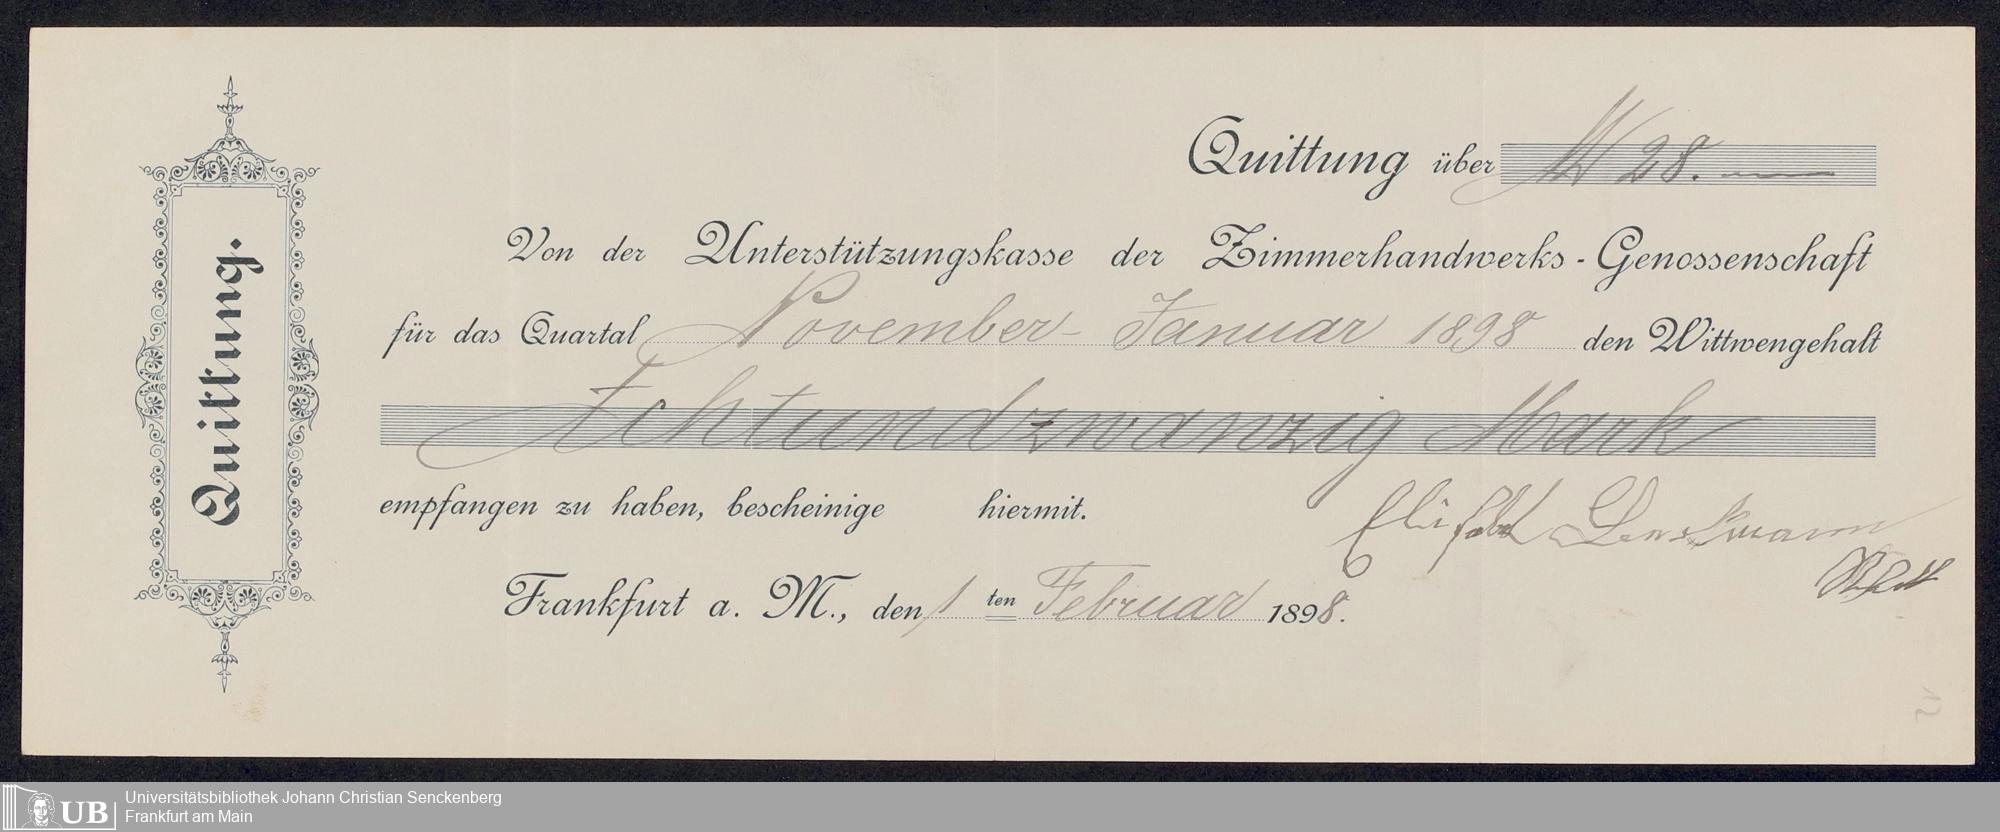 Quittung.
Quittung über M 28.
Von der Unterstützungskasse der Zimmerhandwerks-Genossenschaft
für das Quartal November - Januar 1898 den Wittwengehalt
Achtundzwanzig Mark
empfangen zu haben, bescheinige hiermit.
Frankfurt a. M., den 1 ten Februar 1898.
12
UB
Universitätsbibliothek Johann Christian Senckenberg
Frankfurt am Main